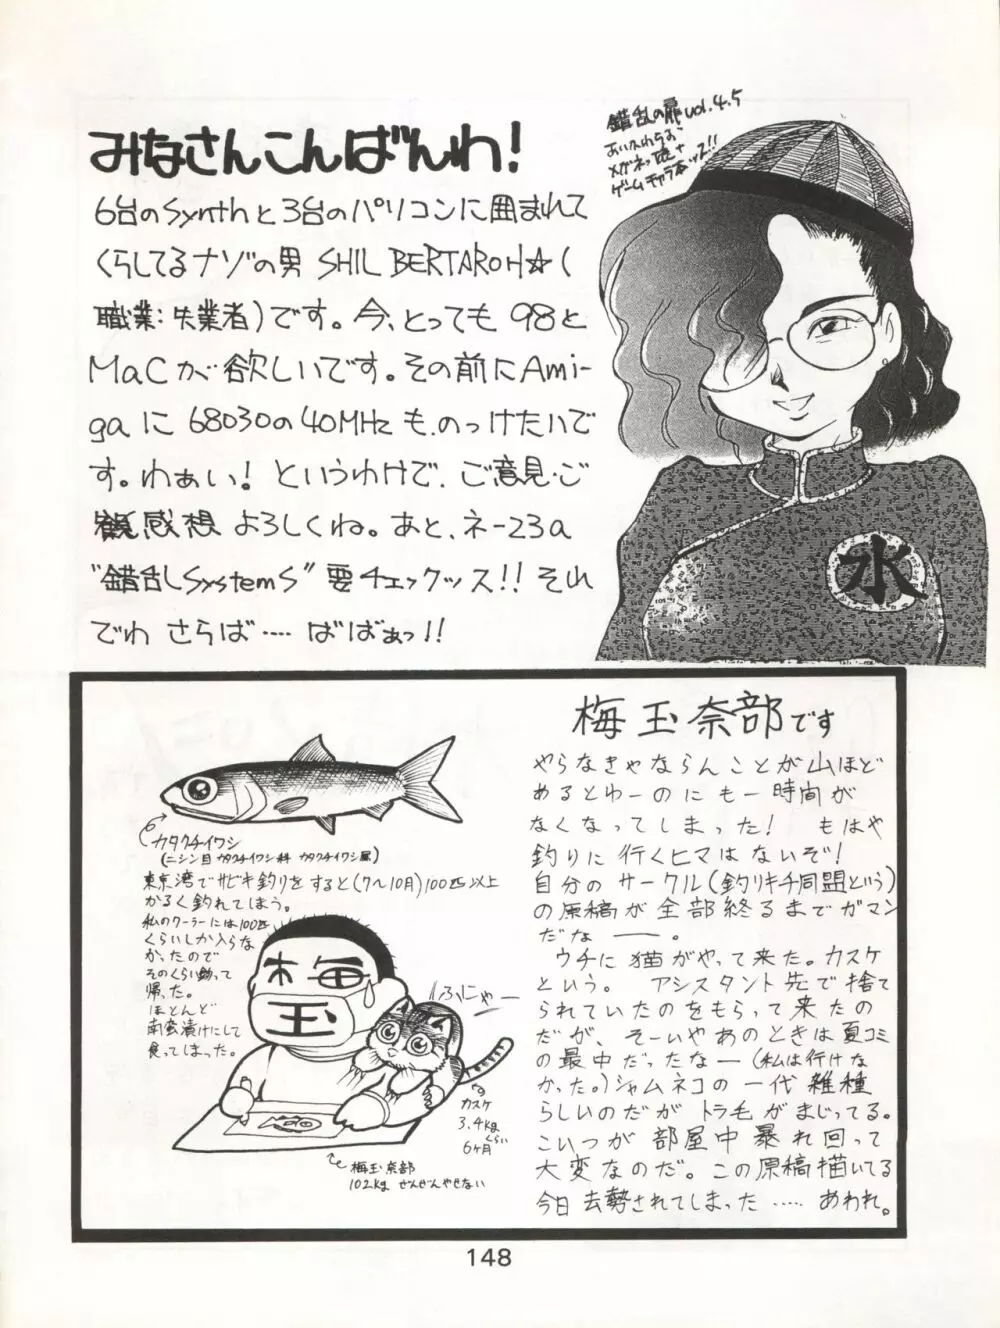 みなさんこんばんわ!
6台のSynthと3台のパソコンに囲まれて
くらしてるナゾの男 SHIL BERTAROH☆(
職業:失業者)です。今、とっても98と
Macが欲しいです。その前にAmi-
gaに68030の40MHzものっけたいで
す。わぁい! というわけで、ご意見・ご
感想 よろしくね。あと、ネー23a
"錯乱SystemS"要チェックッス!! それ
でわ さらば‥‥ ばばぁっ!!
錯乱の扉vol.4.5
メガネっ娘+
ゲームキャラ本ッス!!
水
梅玉奈部です
やらなきゃならんことが山ほど
あるとゆーのにも一時間が
なくなってしまった! もはや
釣りに行くヒマはないぞ!
自分のサークル(釣りキチ同盟という)
の原稿が全部終るまでガマン
だな――。
ウチに猫がやって来た。カスケ
という。 アシスタント先で捨て
られていたのをもらって来たの
だが、そーいやあのときは夏コミ
の最中だったなー(私は行けな
かった。)シャムネコの一代雑種
らしいのだがトラ毛がまじってる。
こいつが部屋中暴れ回って
大変なのだ。この原稿描いてる
今日去勢されてしまった‥‥‥ あわれ。
カタクチイワシ
(ニシン目カタクチイワシ科 カタクチイワシ属)
東京湾でサビキ釣りをすると(7〜10月)100匹以上
かるく釣れてしまう。
私のクーラーには100匹
くらいしか入らな
かったので
そのくらい釣って
帰った。
ほとんど
南蛮漬けにして
食ってしまった。
梅
玉
ふにゃー
カスケ
3.4kg
くらい
6ヶ月
梅玉奈部
102kg ぜんぜんやせない
148